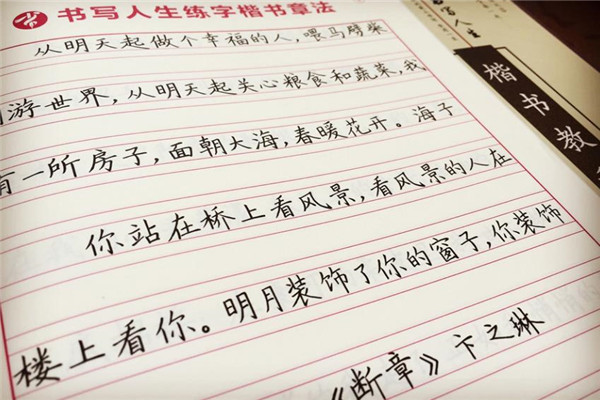 书写人生练字楷书章法
从明天起做个幸福的人,喂马劈柴
游世界,从明天起关心粮食和蔬菜,我
有一所房子,面朝大海,春暖花开。海子
你站在桥上看风景,看风景的人在
楼上看你。明月装饰了你的窗子,你装饰
《断章》卞之琳
写人生
楷书教